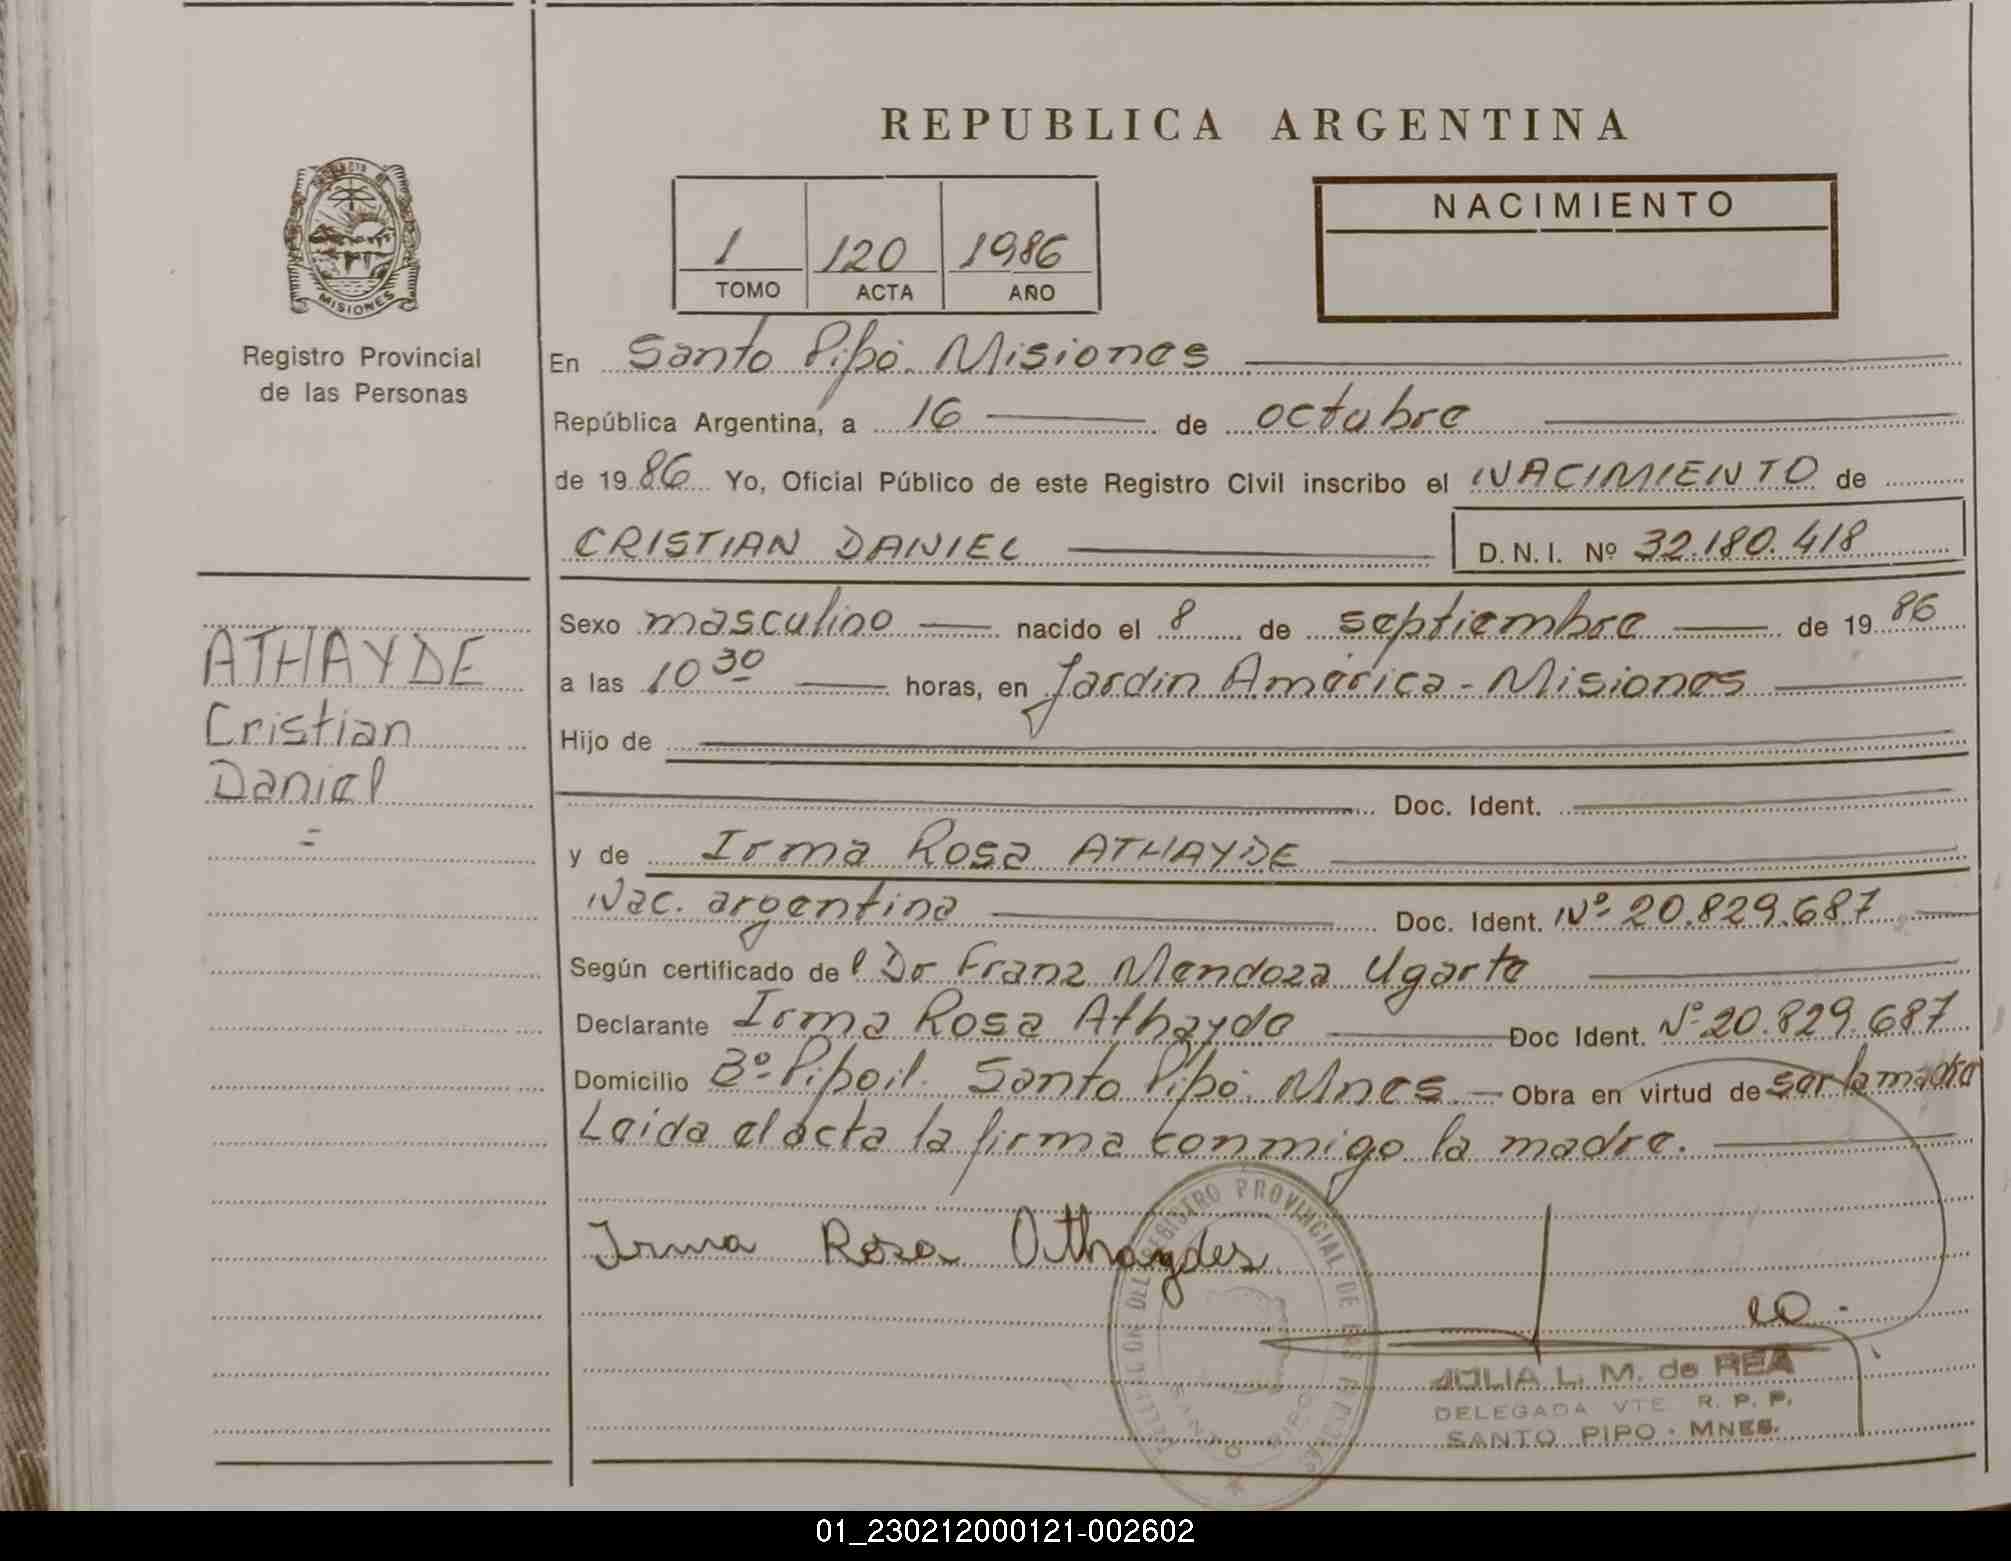 REPUBLICA ARGENTINA
PROVINCIA DE
MISIONES
Registro Provincial
de las Personas
1 120 1986
TOMO ACTA AÑO
NACIMIENTO
En Santo Pipó. Misiones
República Argentina, a 16 de octubre
de 1986 Yo, Oficial Público de este Registro Civil inscribo el NACIMIENTO de
CRISTIAN DANIEL D. N. I. Nº 32.180.418
ATHAYDE
Cristian
Daniel
=
Sexo masculino nacido el 8 de septiembre de 1986
a las 10 30 horas, en Jardín América - Misiones
Hijo de
Doc. Ident.
y de Irma Rosa ATHAYDE
Nac. argentina Doc. Ident. Nº 20.829.687
Según certificado del Dr Franz Mendoza Ugarte
Declarante Irma Rosa Athayde Doc Ident. Nº 20.829.687
Domicilio Bº Pipoil. Santo Pipó. Mnes. - Obra en virtud de ser la madre
Leída el acta la firma conmigo la madre.
Irma Rosa Athaydes
REGISTRO PROVINCIAL DE LAS
SANTO PIPO
JULIA L. M. de REA
DELEGADA VTE R. P. P.
SANTO PIPO - MNES.
01_230212000121-002602